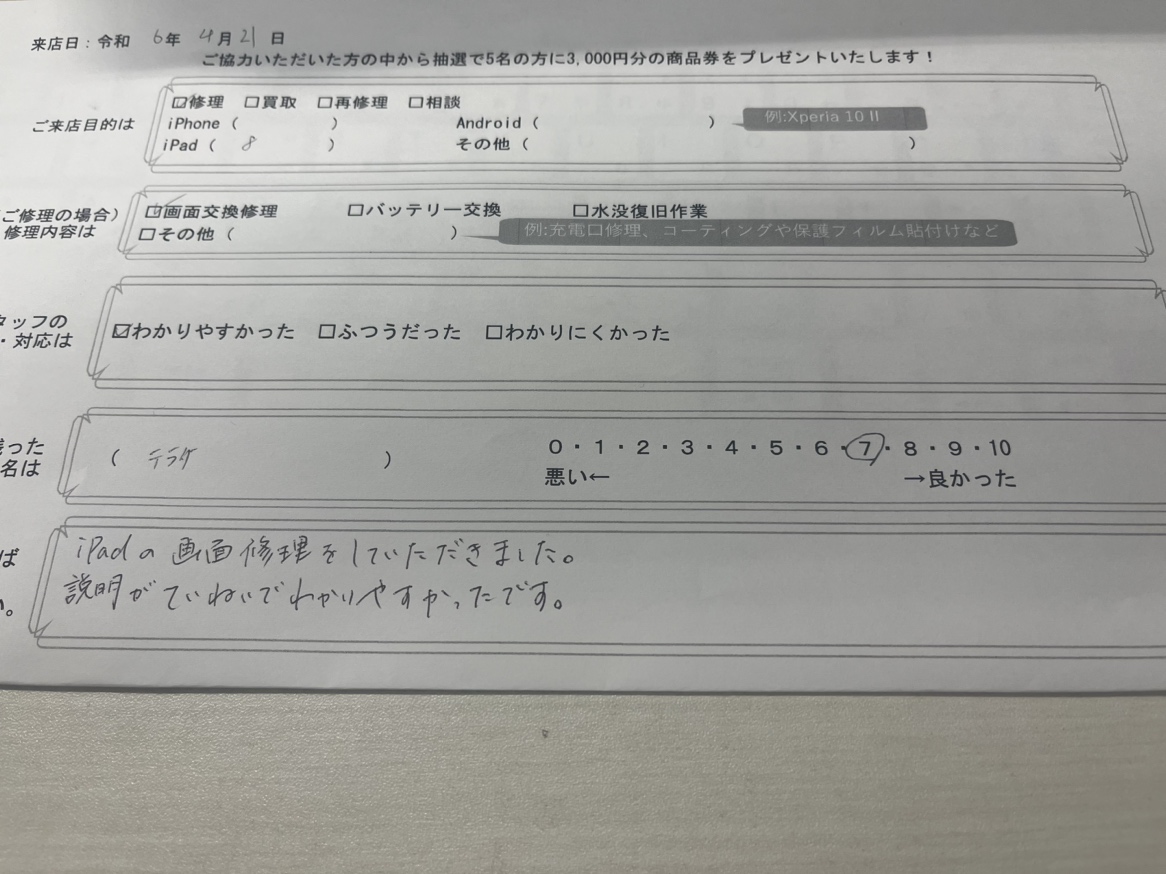 来店日：令和 6年 4月 21 日
ご協力いただいた方の中から抽選で5名の方に3,000円分の商品券をプレゼントいたします！
ご来店目的は
☑修理 □買取 □再修理 □相談
iPhone（ ） Android（ ） 例:Xperia 10 II
iPad（ 8 ） その他（ ）
ご修理の場合）
修理内容は
☑画面交換修理 □バッテリー交換 □水没復旧作業
□その他（ ） 例:充電口修理、コーティングや保護フィルム貼付けなど
タッフの
・対応は
☑わかりやすかった □ふつうだった □わかりにくかった
残った
名は
（ テラケ ） 0・1・2・3・4・5・6・7・8・9・10
悪い← →良かった
ば
い。
iPadの画面修理をしていただきました。
説明がていねいでわかりやすかったです。